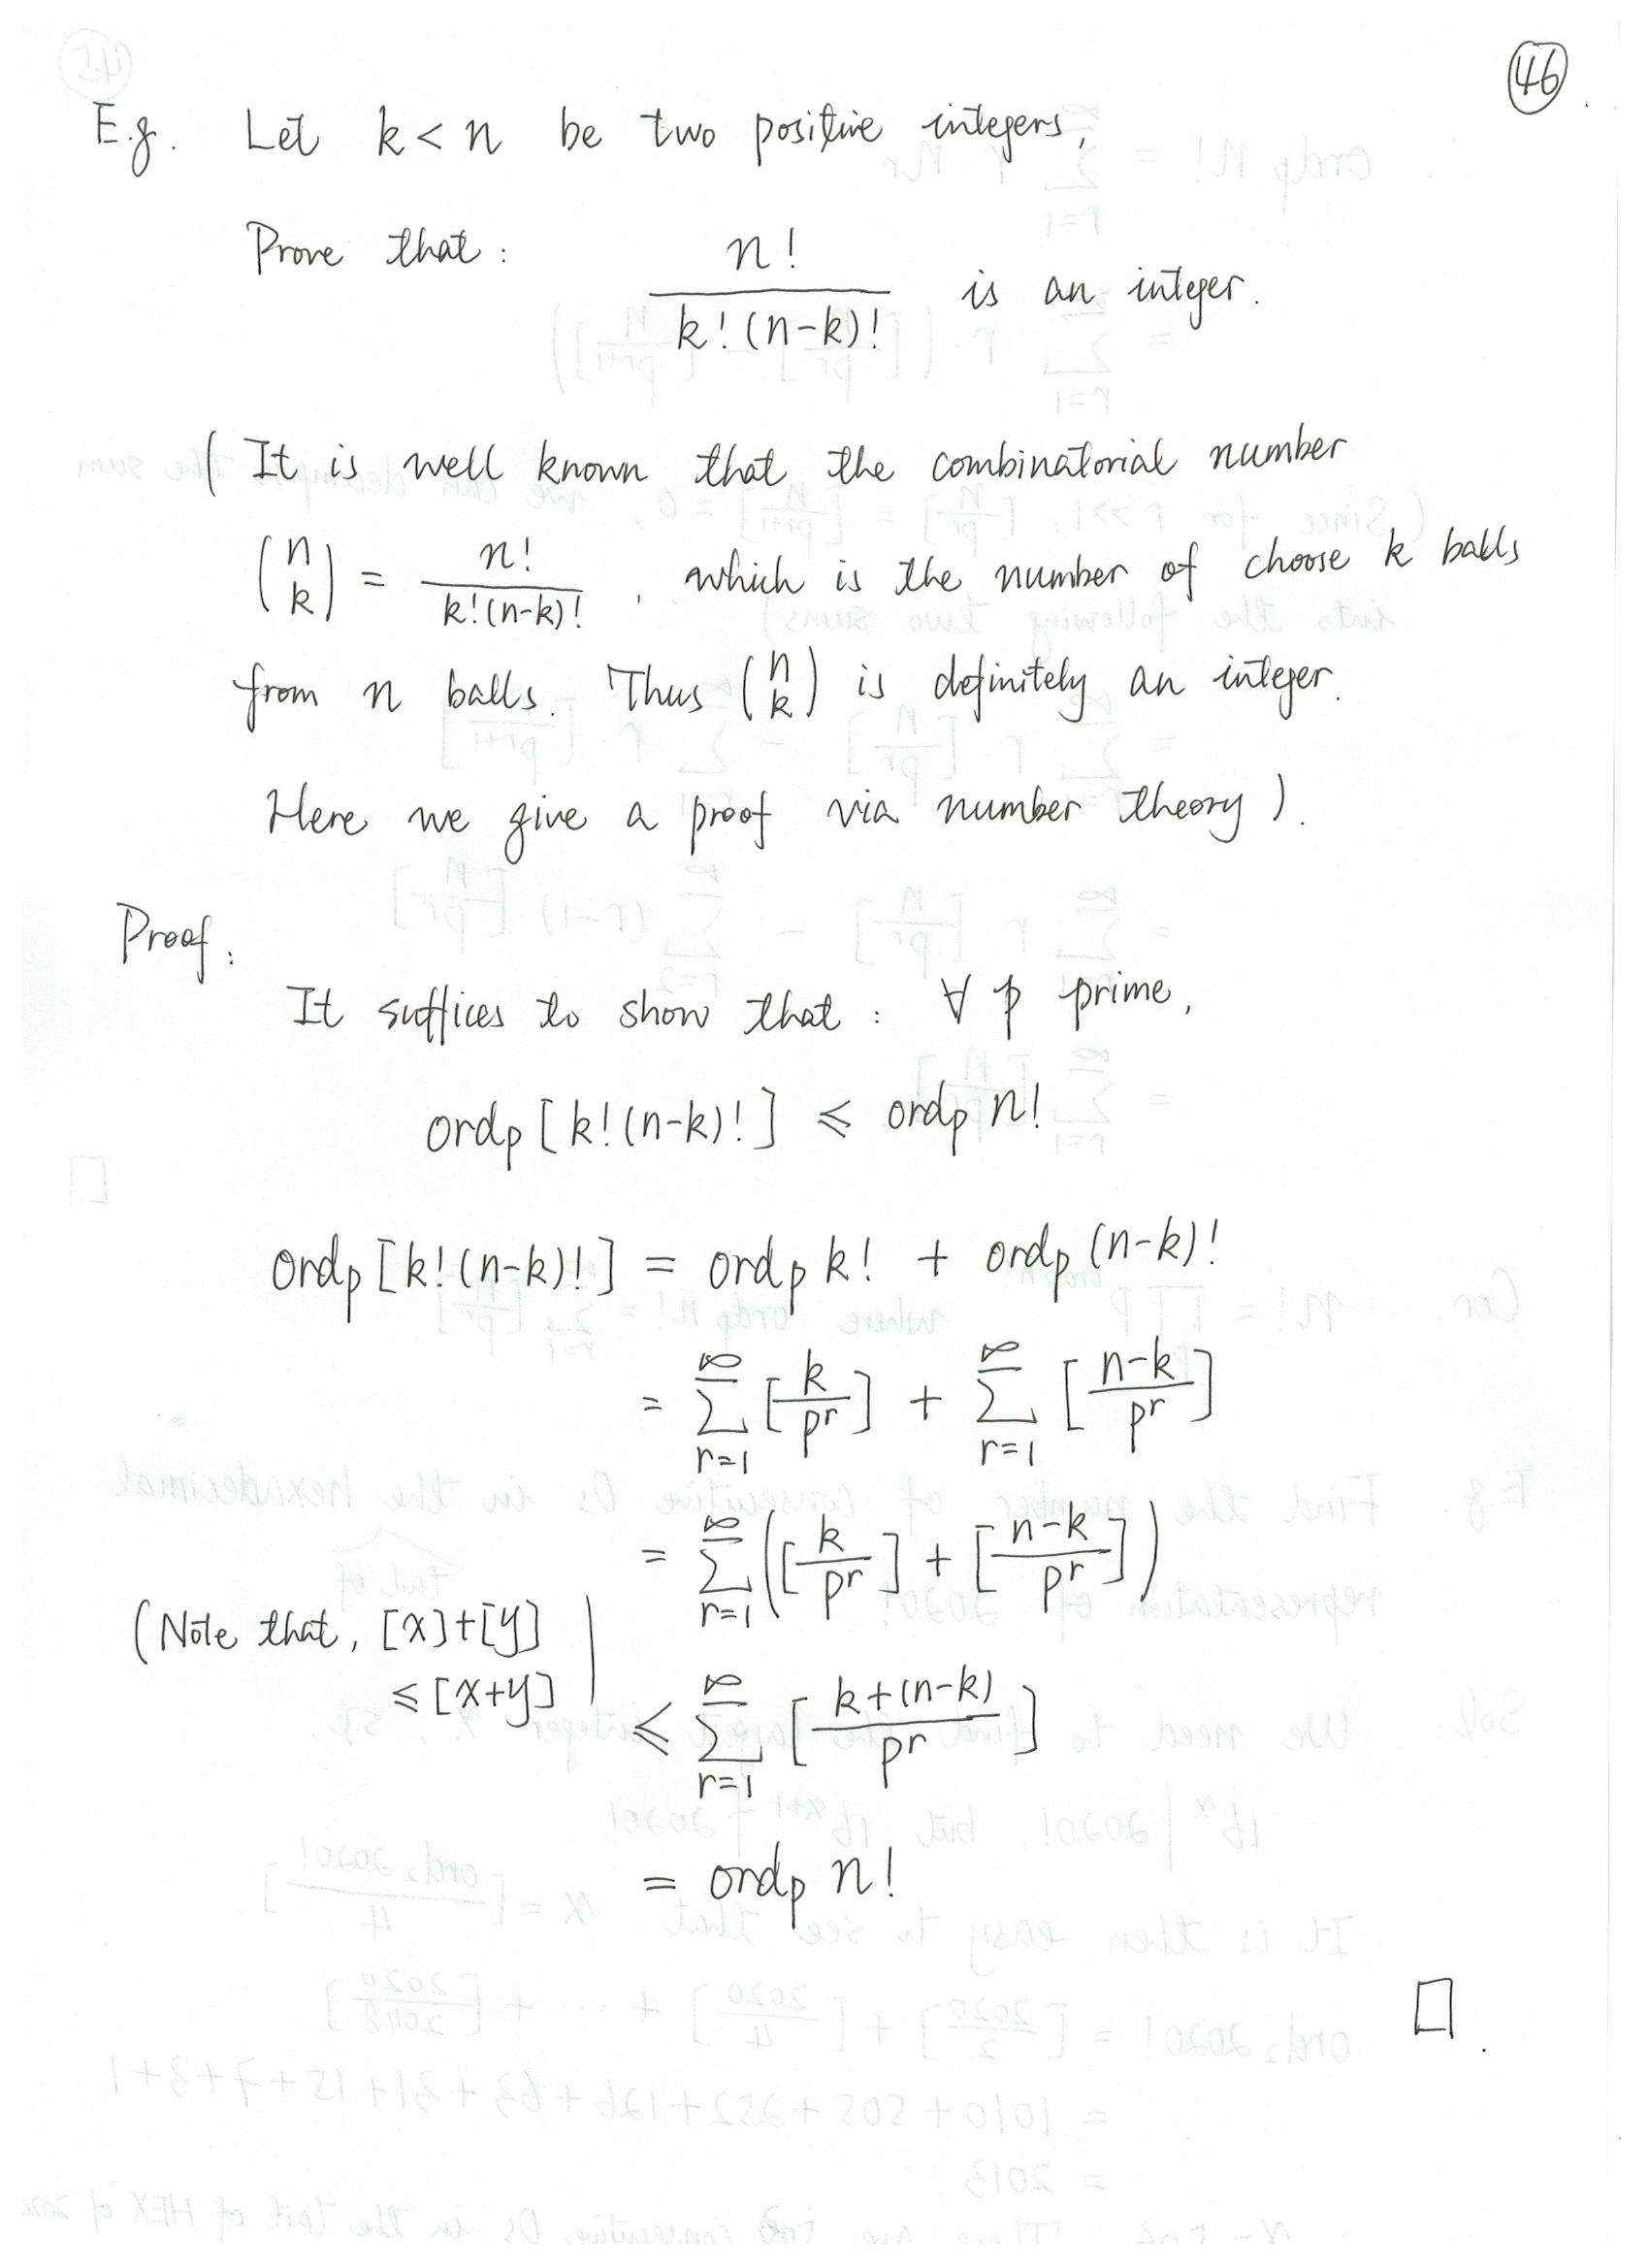 46
E.g. Let k < n be two positive integers,
Prove that: n! / k!(n-k)! is an integer.
( It is well known that the combinatorial number
(n k) = n! / k!(n-k)! , which is the number of choose k balls
from n balls. Thus (n k) is definitely an integer.
Here we give a proof via number theory ).
Proof:
It suffices to show that: ∀ p prime,
ordp [k!(n-k)!] ⩽ ordp n!
ordp [k!(n-k)!] = ordp k! + ordp (n-k)!
= ∑_{r=1}^{∞} [k/p^r] + ∑_{r=1}^{∞} [(n-k)/p^r]
= ∑_{r=1}^{∞} ([k/p^r] + [(n-k)/p^r])
(Note that, [x]+[y]
⩽ [x+y] )
⩽ ∑_{r=1}^{∞} [(k+(n-k))/p^r]
= ordp n!
□.